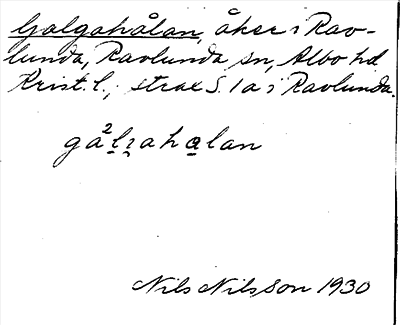 Galgahålan, åker i Rav-
lunda, Ravlunda sn, Albo hd
Krist. l., strax S. 1a i Ravlunda.
ga²lɿahalan
Nils Nilsson 1930